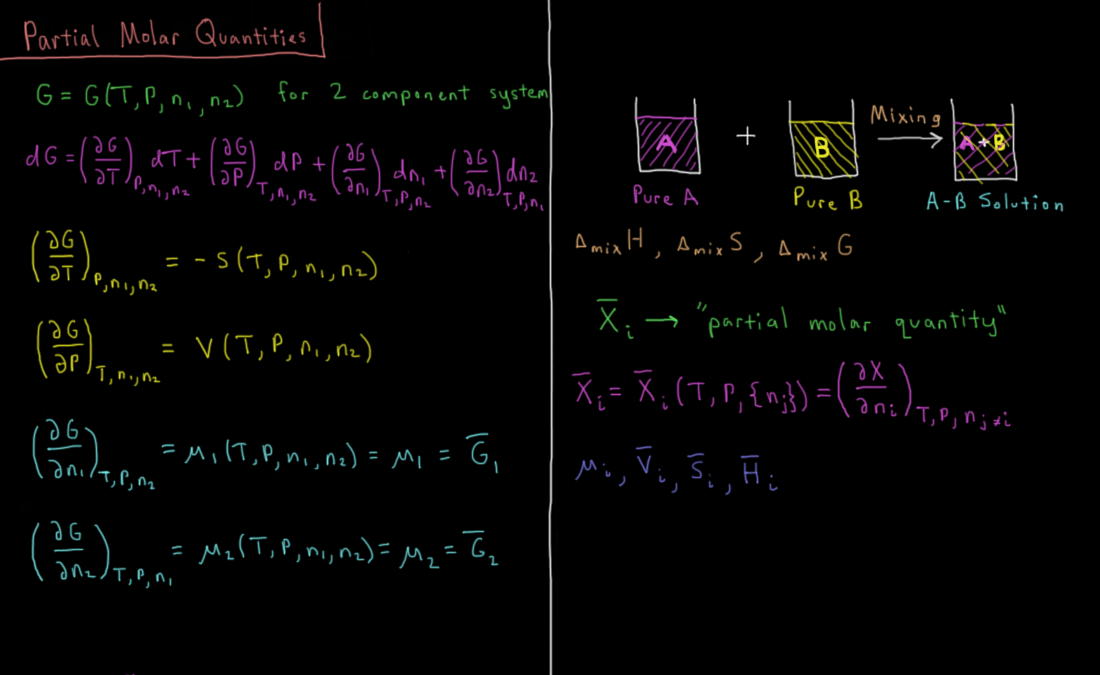 Partial Molar Quantities
G = G(T, P, n₁, n₂) for 2 component system
dG = (∂G/∂T)_P,n₁,n₂ dT + (∂G/∂P)_T,n₁,n₂ dP + (∂G/∂n₁)_T,P,n₂ dn₁ + (∂G/∂n₂)_T,P,n₁ dn₂
(∂G/∂T)_P,n₁,n₂ = - S(T, P, n₁, n₂)
(∂G/∂P)_T,n₁,n₂ = V(T, P, n₁, n₂)
(∂G/∂n₁)_T,P,n₂ = μ₁(T, P, n₁, n₂) = μ₁ = G̅₁
(∂G/∂n₂)_T,P,n₁ = μ₂(T, P, n₁, n₂) = μ₂ = G̅₂
A + B Mixing → A + B
Pure A Pure B A-B Solution
Δmix H, Δmix S, Δmix G
X̅ᵢ → "partial molar quantity"
X̅ᵢ = X̅ᵢ(T, P, {nⱼ}) = (∂X/∂nᵢ)_T,P,nⱼ≠ᵢ
μᵢ, V̅ᵢ, S̅ᵢ, H̅ᵢ